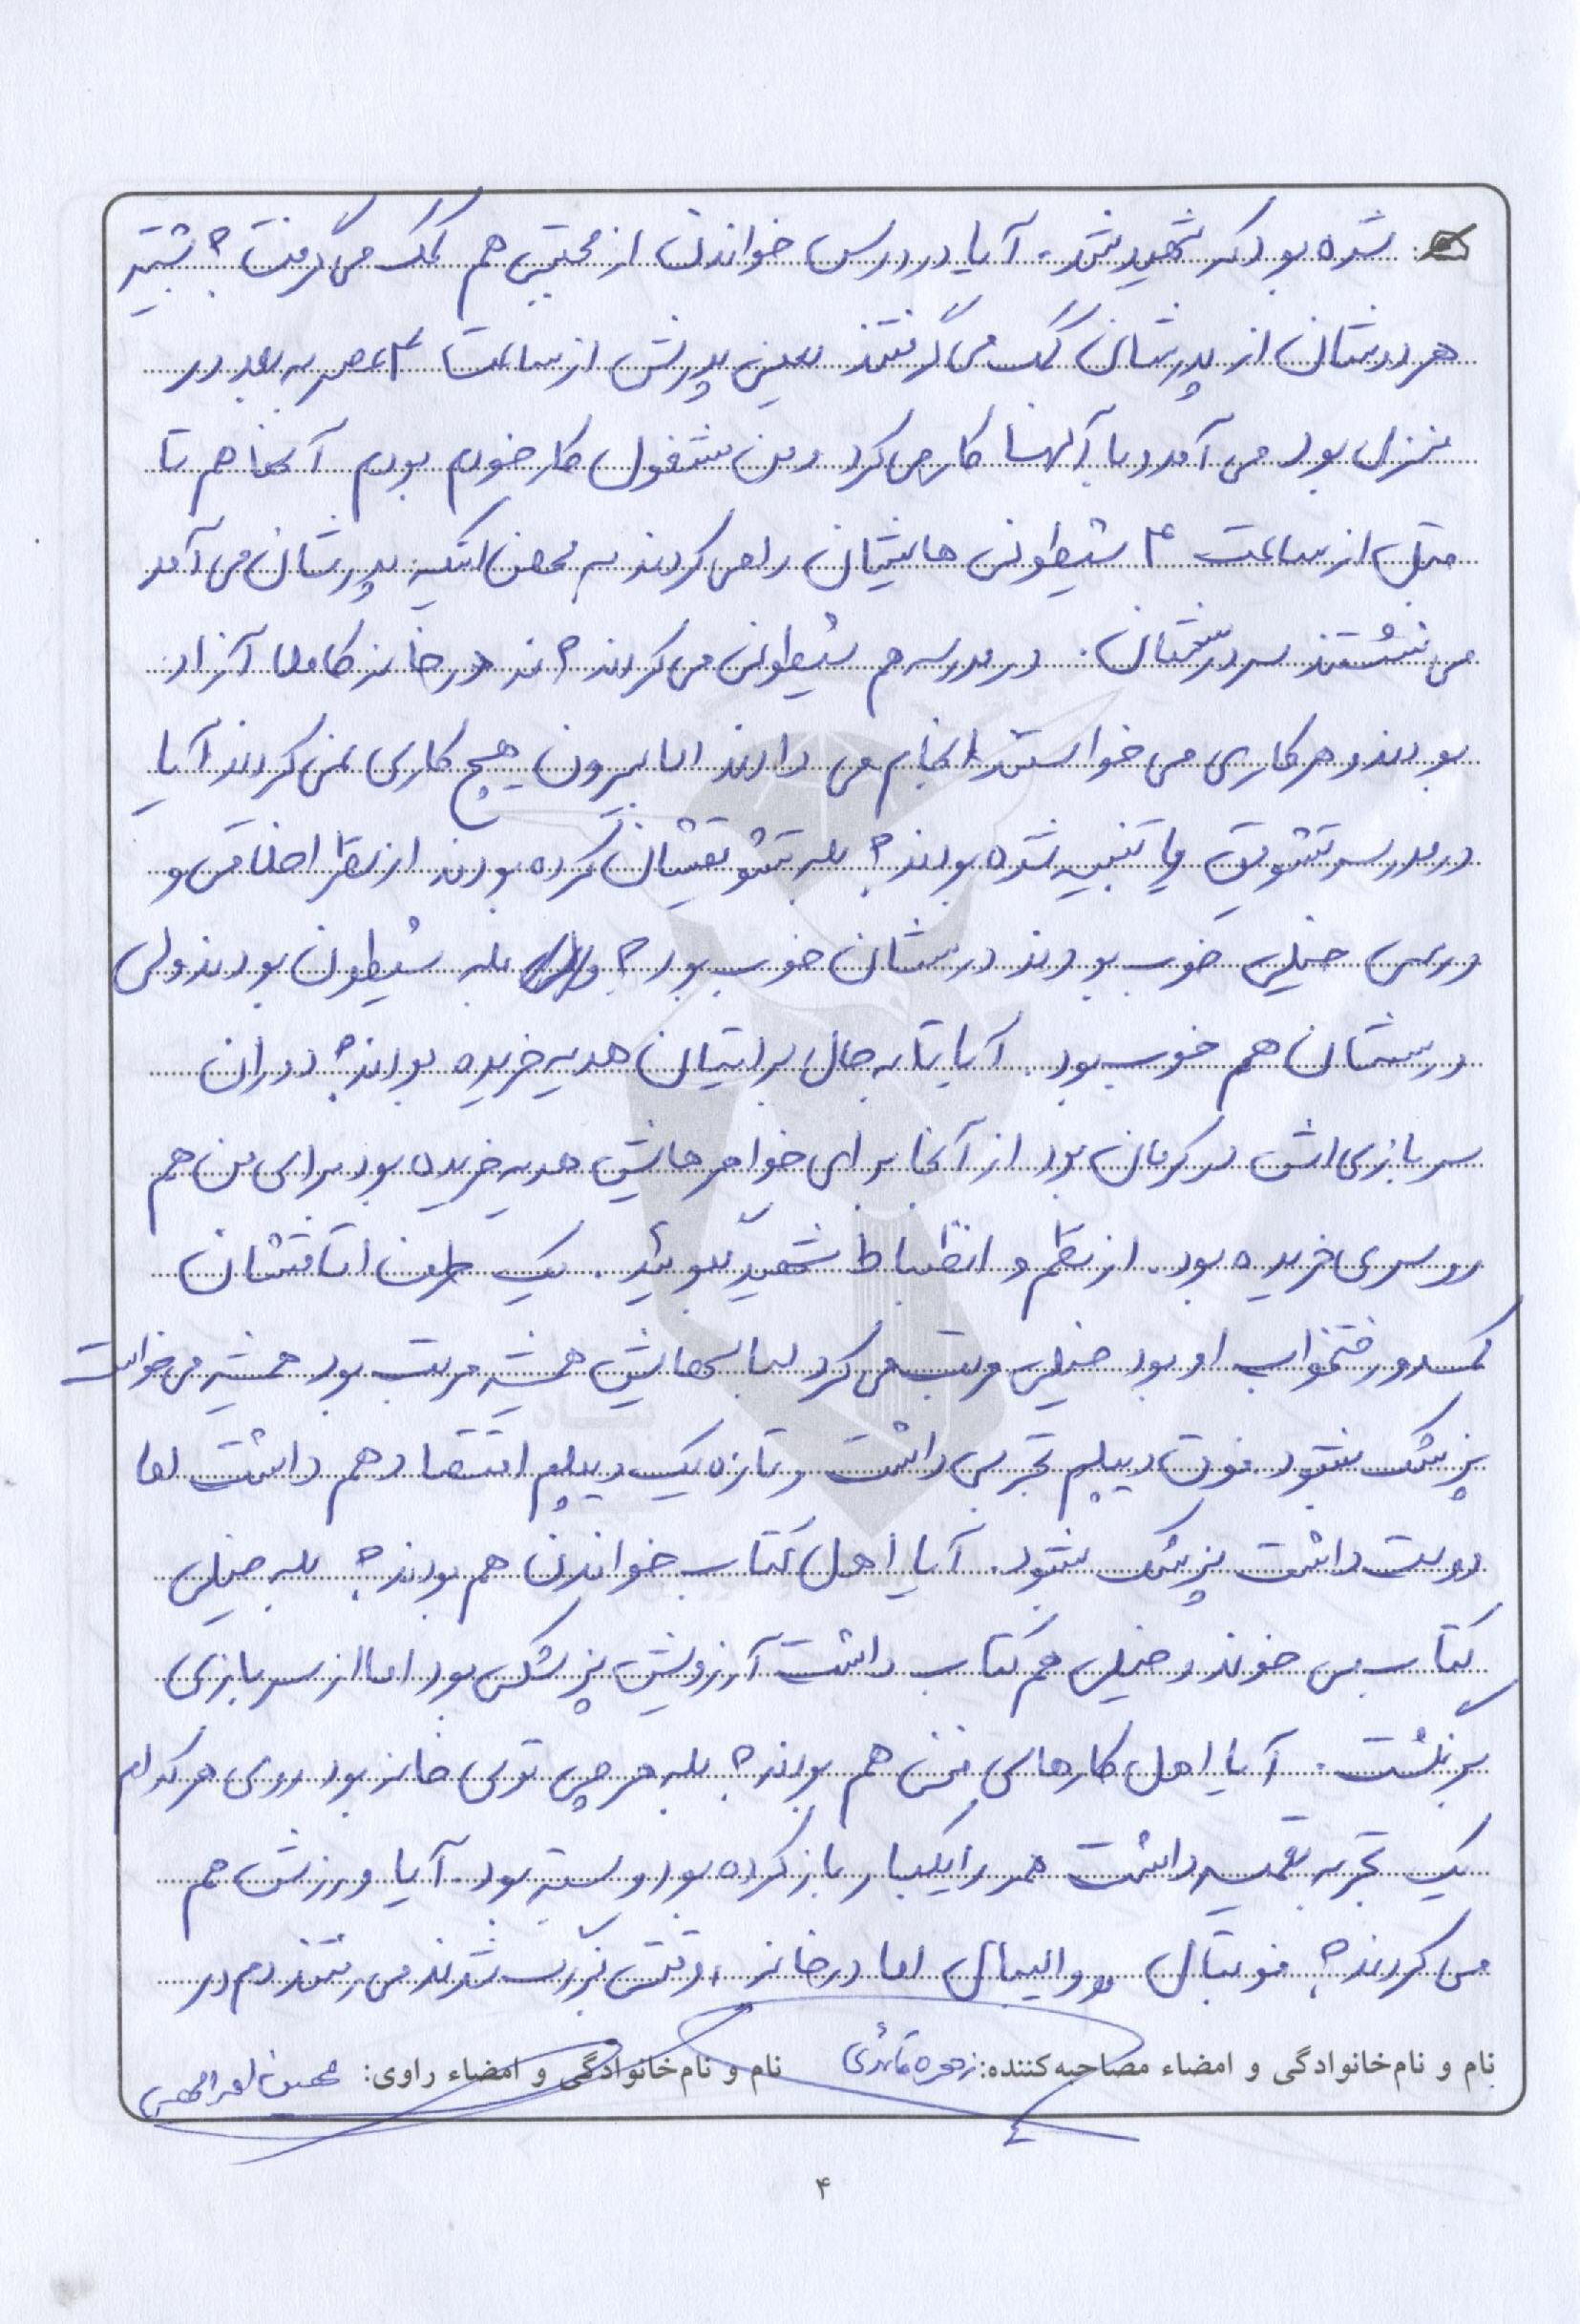 شده بود که شهید شد. آیا در درس خواندن از مجتبی هم کمک می گرفت؟ بیشتر
هر دوشتان از پدرشان کمک می گرفتند یعنی پدرش از ساعت ۴ عصر به بعد در
منزل بود می آمد و با آنها کار می کرد و من مشغول کار خودم بودم آنها هم تا
قبل از ساعت ۴ شیطونی هایشان را می کردند به محض اینکه پدرشان می آمد
می نشستند سر درسشان. در مدرسه هم شیطونی می کردند؟ نه در خانه کاملا آزاد
بودند و هر کاری می خواستند انجام می دادند اما بیرون هیچ کاری نمی کردند آیا
در مدرسه تشویق یا تنبیه شده بودند؟ بله تشویقشان کرده بودند از نظر اخلاقی و
درسی خیلی خوب بودند درسشان خوب بود؟ بله شیطون بودند ولی
درسشان هم خوب بود. آیا تا به حال برایتان هدیه خریده بودند؟ دوران
سربازی اش در کرمان بود از آنجا برای خواهرهایش هدیه خریده بود برای من هم
روسری خریده بود. از نظم و انظباط شهید بگوئید. یک طرف اتاقشان
کمد و رختخواب او بود خیلی مرتب می کرد لباسهایش همیشه مرتب بود همیشه می خواست
پزشک بشود فوق دیپلم تجربی داشت و تازه یک دیپلم اقتصاد هم داشت اما
دوست داشت پزشک بشود. آیا اهل کتاب خواندن هم بودند؟ بله خیلی
کتاب می خوند و خیلی هم کتاب داشت آرزویش پزشکی بود اما از سربازی
برنگشت. آیا اهل کارهای فنی هم بودند؟ بله هر چی توی خانه بود روی هر کدام
یک تجربه داشت همه را یکبار باز کرده بود و بسته بود. آیا ورزش هم
می کردند؟ فوتبال و والیبال اما در خانه، وقتی بزرگ شدند می رفتند دم در
نام و نام خانوادگی و امضاء مصاحبه کننده: زهره قائدی نام و نام خانوادگی و امضاء راوی:
۴